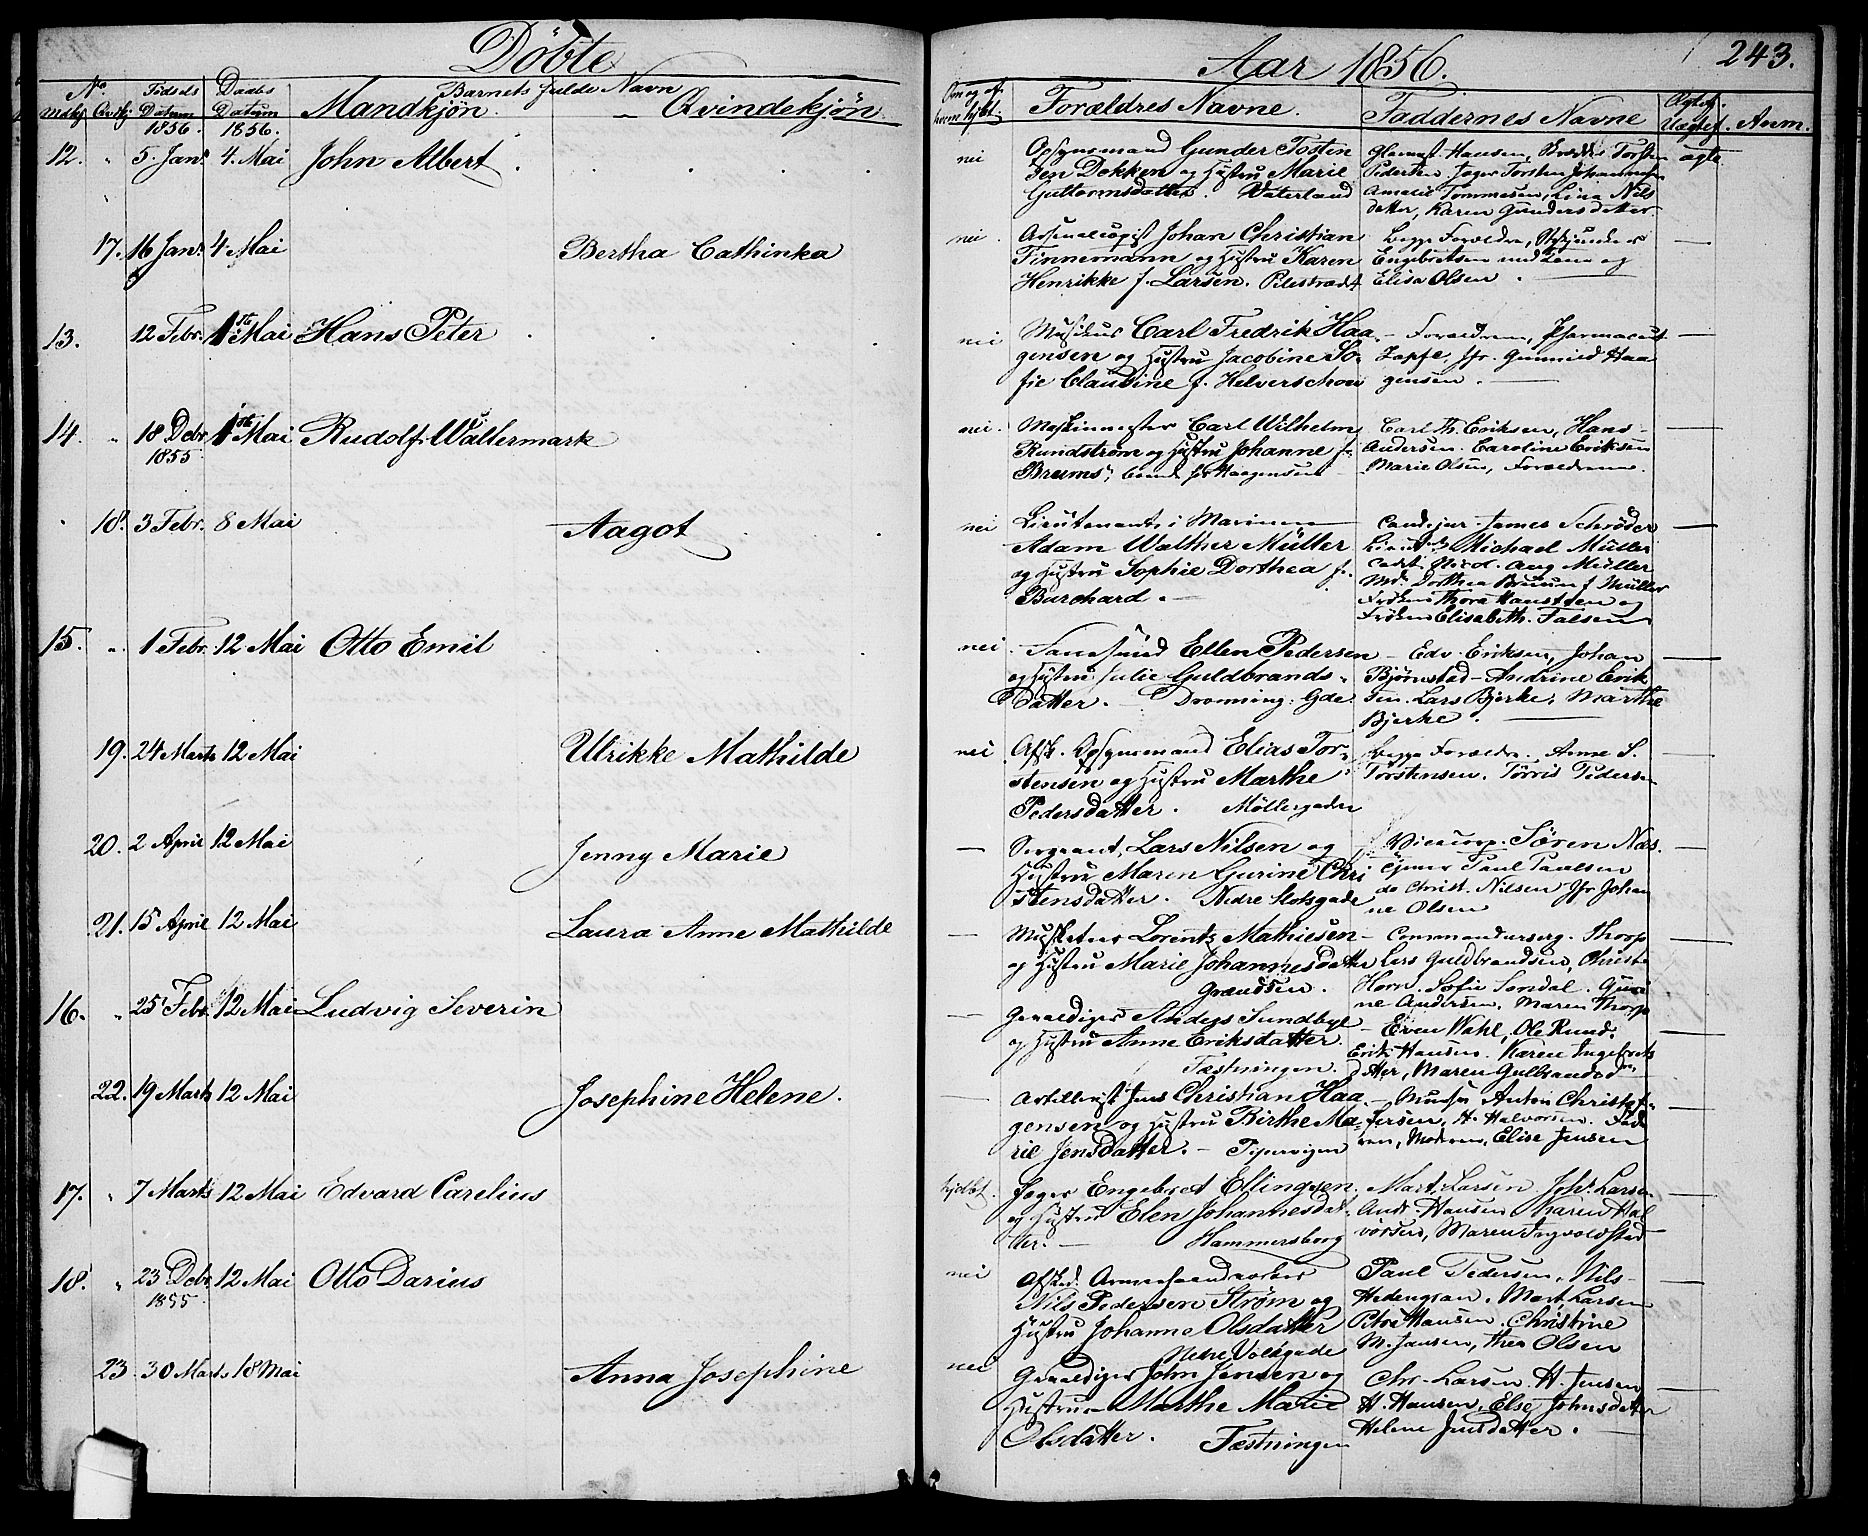 Döbte
Aar 1856.
243.
No Mdkj. Qvkj. Födsels Datum 1856. Daabs Datum 1856. Barnets fulde Navn Mandkjøn. Qvindekjøn.
Forældres Navne. Faddernes Navne Anm.
12. " 5. Janr 4. Mai John Albert
nei Opsynsmand Gunder Tostin
sen Dekken og Hustru Marie
Guttormsdatter. Vaterland
Hansen, Torsten
Pedersen Jæger Torsten Johannesen
Amalie Tommesen, Lina Nils
datter, Karen Gundersdatter.
ægte
17. 16 Janr 4. Mai Bertha Cathinka
nei. Johan Christian
Finnemann og Hustru Karen
Henrikke f. Larsen. Pilestrædet
Begge Forældre,
Engebretsen med Lena og
Elisa Olsen.
13. 12 Febr. 1ste Mai Hans Peter
nei Musikus Carl Fredrik Haa
gensen og Hustru Jacobine So-
fie Claudine f. Helverschou
Forældrene, Pharmaceut
Zapfe, Jfr. Gunnild Haa
gensen.
14. " 18 Debr 1855 1ste Mai Rudolf Wallermark
nei. Maskinmester Carl Wilhelm
Rundstrøm og Hustru Johanne f.
Brums,
Carl Th. Eriksen, Hans
Andersen. Caroline Eriksen
Marie Olsen, Forældrene.
18. 3 Febr. 8 Mai Aagot
nei Lieutenant i Marinen
Adam Walther Müller
og Hustru Sophie Dorthea f.
Burchard.
Cand. jur. James Schrøder
Lieut. Michael Müller
Cadet Nicol. Aug Müller
Md. Dorthea Bruun f Müller
Frøken Thora Hansteen og
Frøken Elisabeth Falsen
15. " 1 Febr. 12 Mai Otto Emil
nei. Ellen Pedersen
og Hustru Julie Guldbrands-
datter. Dronning. Gde.
Edv. Eriksen, Johan
Bjørnstad - Andrine Erik
sen. Lars Bjerke, Marthe
Bjerke.
19. 24 Marts 12 Mai Ulrikke Mathilde
nei Afsk. Opsynsmand Elias Tor-
stensen og Hustru Marthe
Pedersdatter. Møllergaden
Begge Forældre. Anne S.
Torstensen. Torris Peders
20. 2 April 12 Mai Jenny Marie
Sergeant, Lars Nilsen og
Hustru Maren Gurine Chri
stensdatter. Nedre Slotsgade
Vicecorp. Søren Nds.
Paul Paulsen
do Christ. Nilsen Jfr Johan
ne Olsen
21. 15 April 12 Mai Laura Anne Mathilde
Musketeer Lorentz Mathiesen
og Hustru Marie Johannesdatter
Grændsen.
Commanderserg. Thorp
Lars Guldbrandsen, Christe
Horn. Sofie Sendal. Guri
ne Andersen. Maren Thorp
16. " 25 Febr. 12 Mai Ludvig Severin
Gevaldiger Anders Sundbye
og Hustru Anne Eriksdatter.
Fæstningen.
Even Wahl, Ole Rund.
Erik Hansen. Karen Ingebrets
datter, Maren Gulbrandsd
22. 19 Marts 12 Mai Josephine Helene.
Artillerist Jens Christian Haa
gensen og Hustru Birthe Ma-
rie Jensdatter. Pipervigen
Anton Christof
fersen, H. Halvorsen. Fade
ren, Moderen, Elise Jensen
17. " 7 Marts 12 Mai Edvard Carelius
Jæger Engebret Ellingsen
og Hustru Elen Johannesdat
ter. Hammersborg
Mart. Larsen Johs. Larsen
Andr. Hansen Karen Hal
vorsen, Maren Ingvoldstad
18. " 23 Debr 1855. 12 Mai Otto Darius
nei Afsked.
Nils Pedersen Strøm og
Hustru Johanne Olsdatter
Nedre Volsgade
Paul Pedersen, Nils
Mart. Larsen
Petra Hansen. Christine
M. Jansen, Thea Olsen
23. 30 Marts 18 Mai Anna Josephine
nei Gevaldiger John Jensen og
Hustru Marthe Marie
Olsdatter. Fæstningen
Chr. Larsen. H. Jensen
H. Hansen, Else Johnsdatter
Helene Jensdatter.